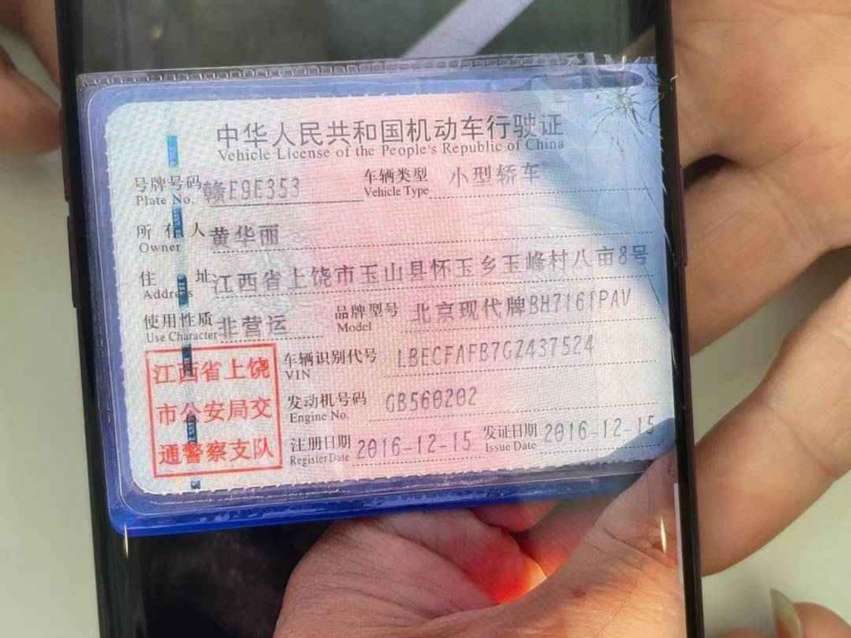 中华人民共和国机动车行驶证
Vehicle License of the People's Republic of China
号牌号码 赣E9E353 车辆类型 小型轿车
Plate No. Vehicle Type
所有人 黄华丽
Owner
住址 江西省上饶市玉山县怀玉乡玉峰村八亩8号
Address
使用性质 非营运 品牌型号 北京现代牌BH7161PAV
Use Character Model
江西省上饶 车辆识别代号 LBECFAFB7GZ437524
VIN
市公安局交 发动机号码 GB560202
Engine No.
通警察支队 注册日期 2016-12-15 发证日期 2016-12-15
Register Date Issue Date